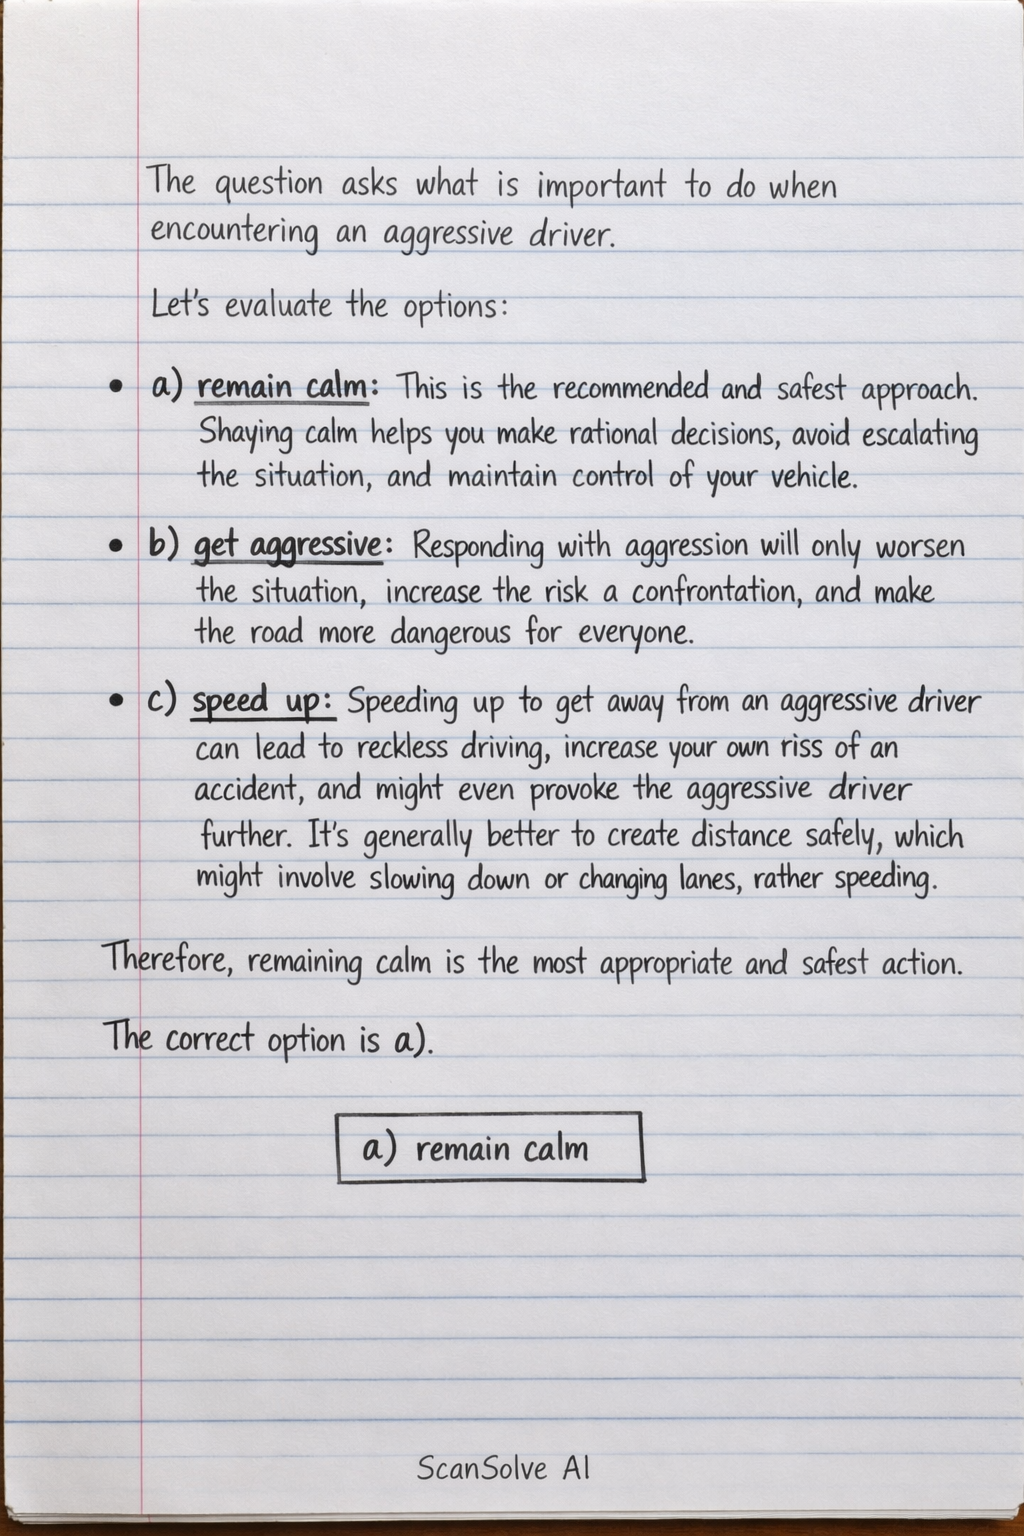 The question asks what is important to do when
encountering an aggressive driver.
Let's evaluate the options:
• a) remain calm: This is the recommended and safest approach.
Shaying calm helps you make rational decisions, avoid escalating
the situation, and maintain control of your vehicle.
• b) get aggressive: Responding with aggression will only worsen
the situation, increase the risk a confrontation, and make
the road more dangerous for everyone.
• c) speed up: Speeding up to get away from an aggressive driver
can lead to reckless driving, increase your own riss of an
accident, and might even provoke the aggressive driver
further. It's generally better to create distance safely, which
might involve slowing down or changing lanes, rather speeding.
Therefore, remaining calm is the most appropriate and safest action.
The correct option is a).
a) remain calm
ScanSolve AI